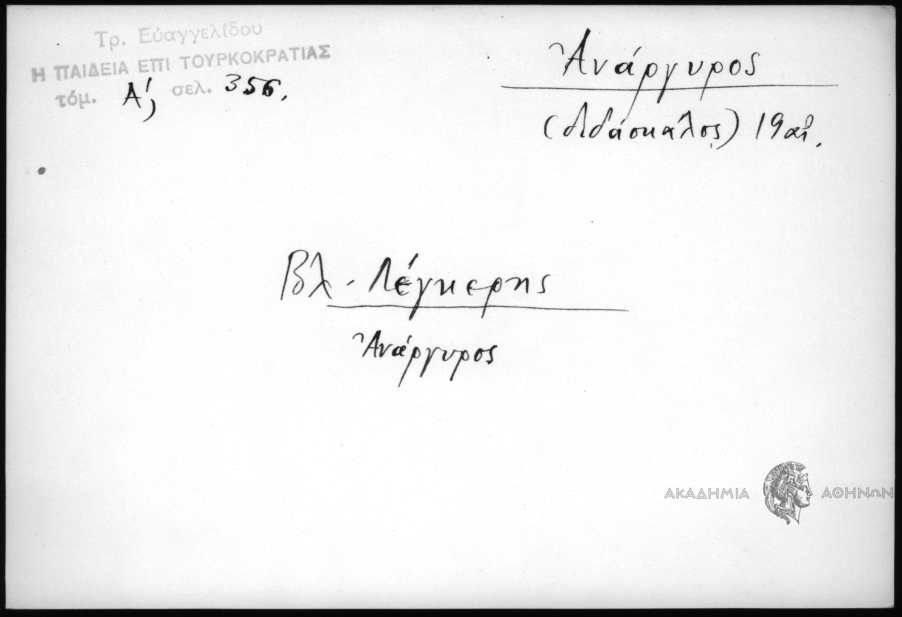 Τρ. Εὐαγγελίδου
Η ΠΑΙΔΕΙΑ ΕΠΙ ΤΟΥΡΚΟΚΡΑΤΙΑΣ
τόμ. Α', σελ. 356.
Ἀνάργυρος
(διδάσκαλος) 19 αἰ.
Βλ. Λέγκερης
Ἀνάργυρος
ΑΚΑΔΗΜΙΑ ΑΘΗΝΩΝ